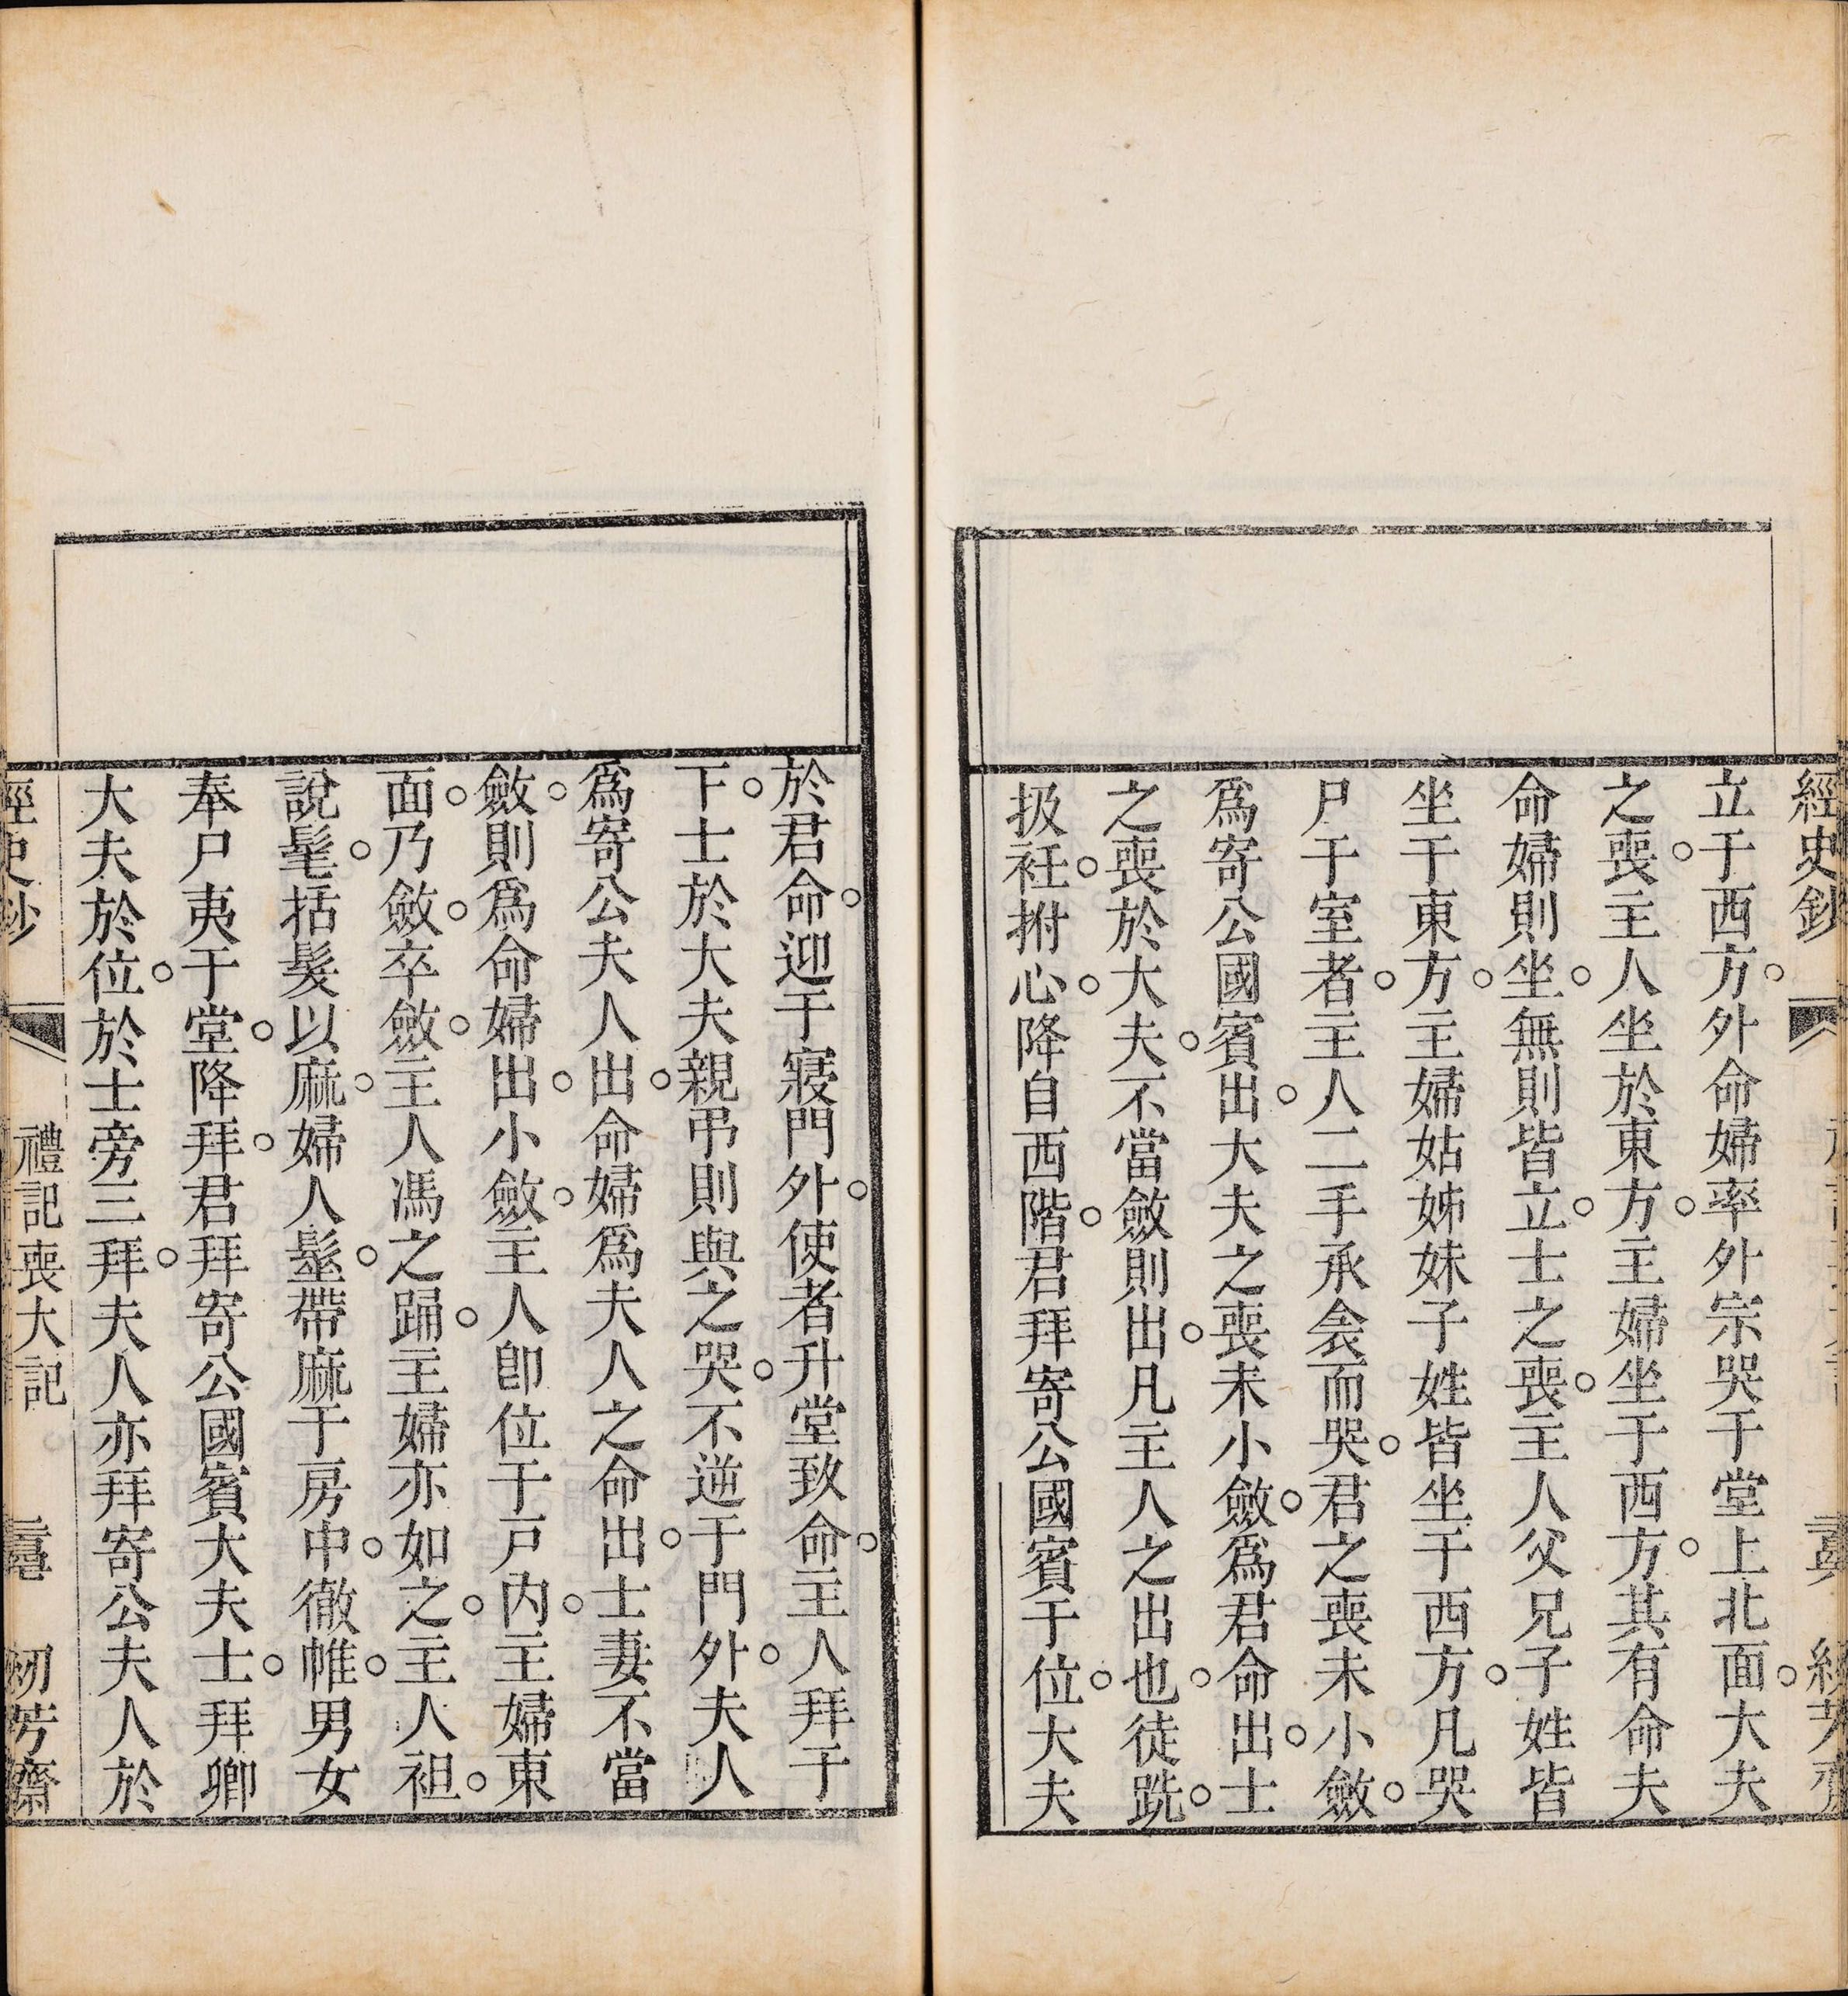 經史鈔
立于西方。外命婦率外宗哭于堂上北面。大夫
之喪。主人坐於東方。主婦坐于西方。其有命夫
命婦則坐。無則皆立。士之喪。主人父兄子姓皆
坐于東方。主婦姑姊妹子姓皆坐于西方。凡哭
尸于室者。主人二手承衾而哭。君之喪未小斂。
爲寄公國賓出。大夫之喪未小斂。爲君命出。士
之喪於大夫。不當斂則出。凡主人之出也。徒跣。
扱衽。拊心。降自西階。君拜寄公國賓于位。大夫
於君命。迎于寢門外。使者升堂致命。主人拜于
下。士於大夫親弔則與之哭。不逆于門外。夫人
爲寄公夫人出。命婦爲夫人之命出。士妻不當
斂。則爲命婦出。小斂。主人卽位于戸內。主婦東
面。乃斂。卒斂。主人馮之踊。主婦亦如之。主人袒。
說髦。括髮以麻。婦人髽。帶麻于房中。徹帷。男女
奉尸夷于堂。降拜。君拜寄公國賓大夫士。拜卿
大夫於位。於士旁三拜。夫人亦拜寄公夫人於
經史鈔
禮記喪大記